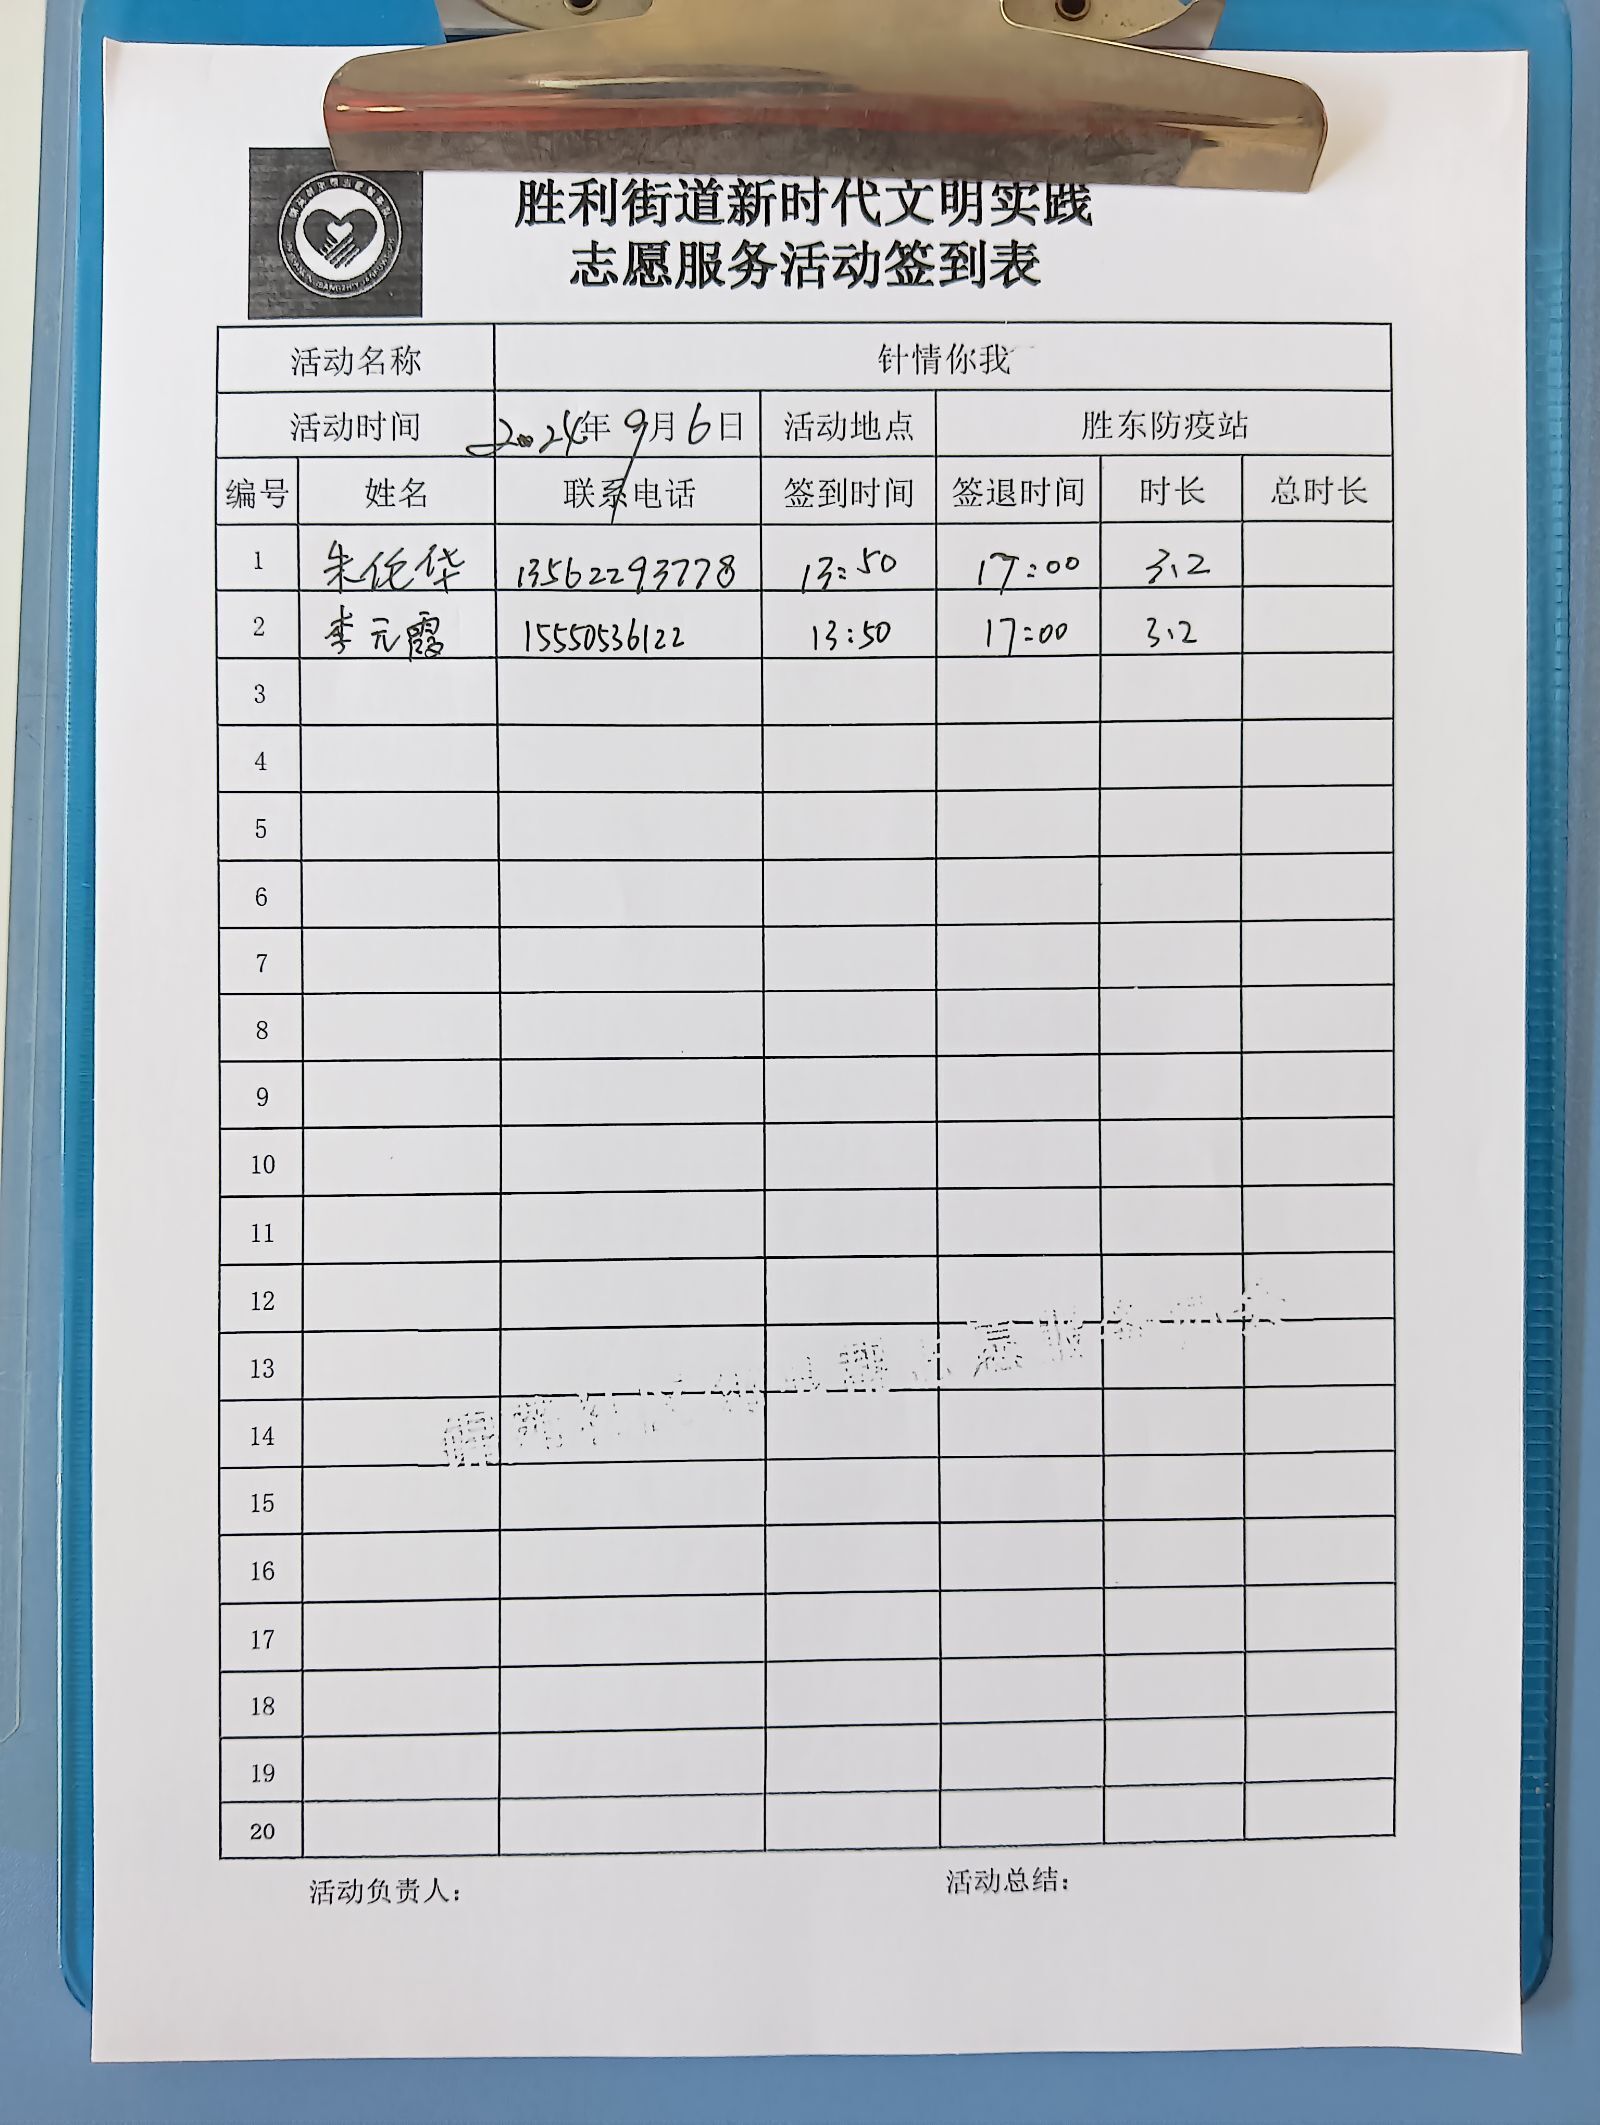 胜利街道新时代文明实践
志愿服务活动签到表
活动名称 针情你我
活动时间 2024年9月6日 活动地点 胜东防疫站
编号 姓名 联系电话 签到时间 签退时间 时长 总时长
1 朱伦华 13562293778 13:50 17:00 3.2
2 李元霞 15550536122 13:50 17:00 3.2
3
4
5
6
7
8
9
10
11
12
13
14
15
16
17
18
19
20
活动负责人： 活动总结：